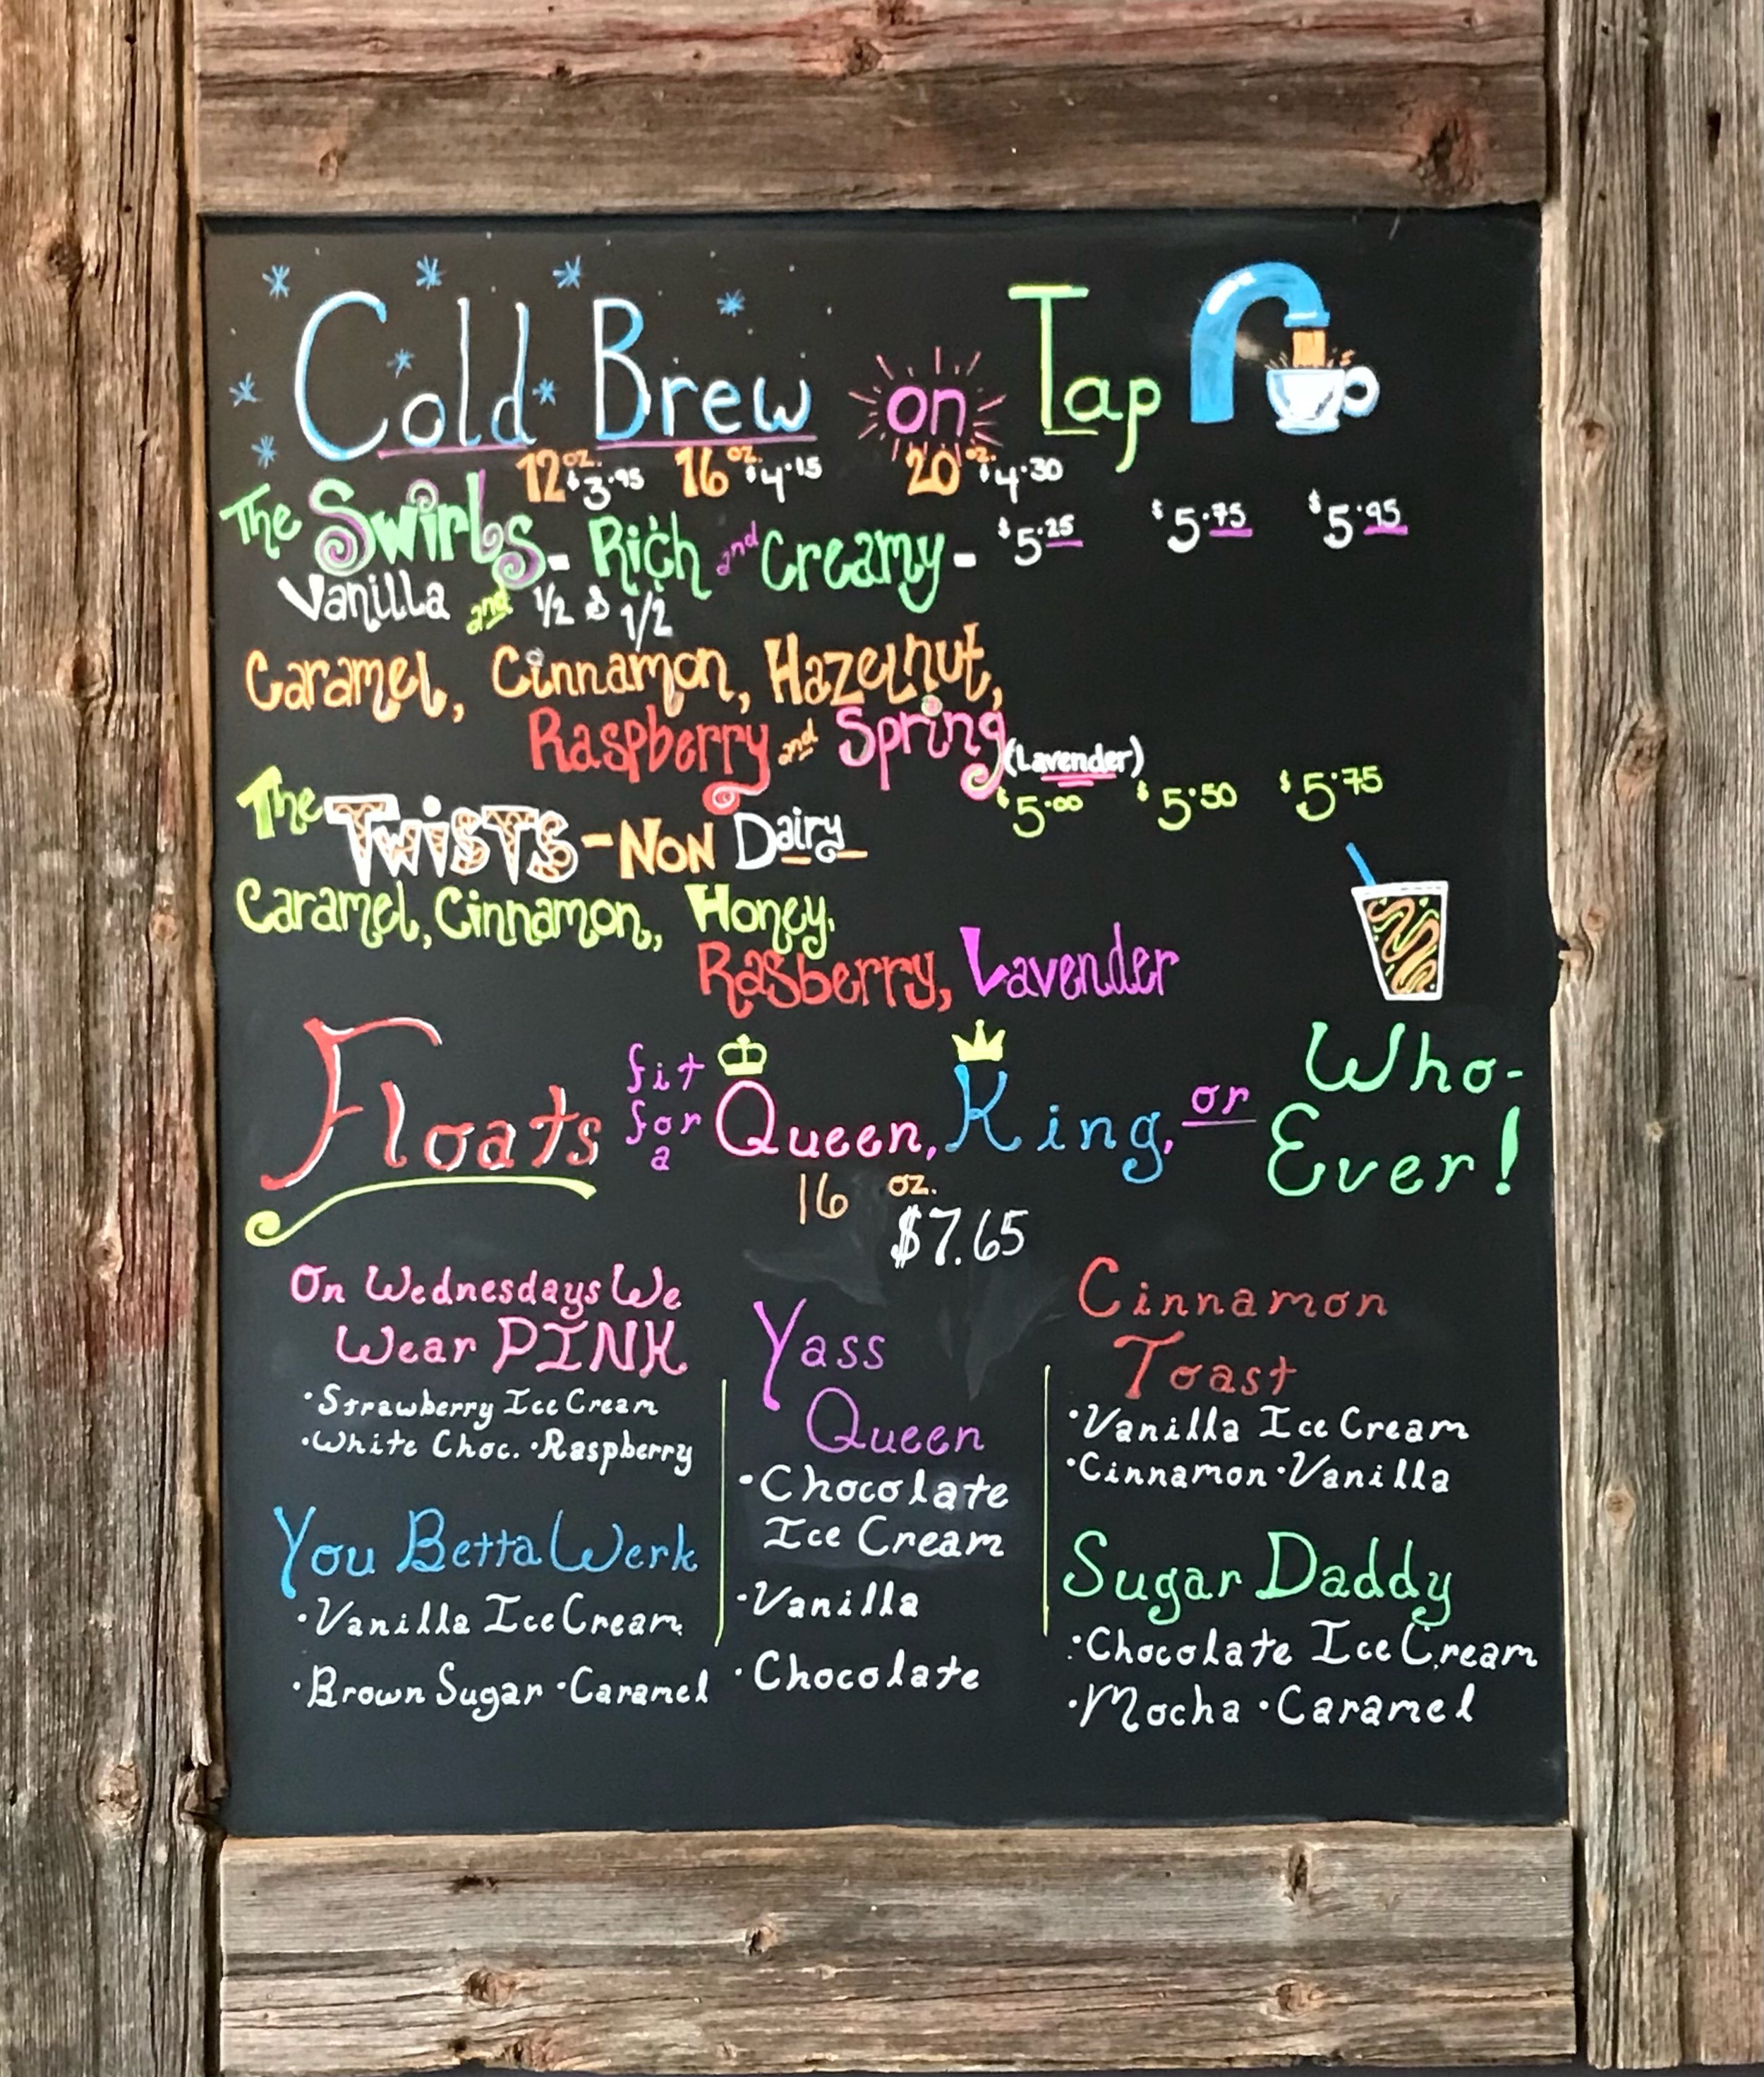 Cold Brew on Tap
12 oz. $3.95 16 oz. $4.15 20 oz. $4.30
The Swirls - Rich and Creamy - $5.25 $5.75 $5.95
Vanilla and 1/2 & 1/2
Caramel, Cinnamon, Hazelnut,
Raspberry and Spring (Lavender)
The Twists - Non Dairy $5.00 $5.50 $5.75
Caramel, Cinnamon, Honey,
Rasberry, Lavender
Floats fit for a Queen, King, or Who-
Ever!
16 oz.
$7.65
On Wednesdays We
Wear PINK
·Strawberry Ice Cream
·White Choc. ·Raspberry
You Betta Werk
·Vanilla Ice Cream
·Brown Sugar ·Caramel
Yass
Queen
·Chocolate
Ice Cream
·Vanilla
·Chocolate
Cinnamon
Toast
·Vanilla Ice Cream
·Cinnamon ·Vanilla
Sugar Daddy
·Chocolate Ice Cream
·Mocha ·Caramel